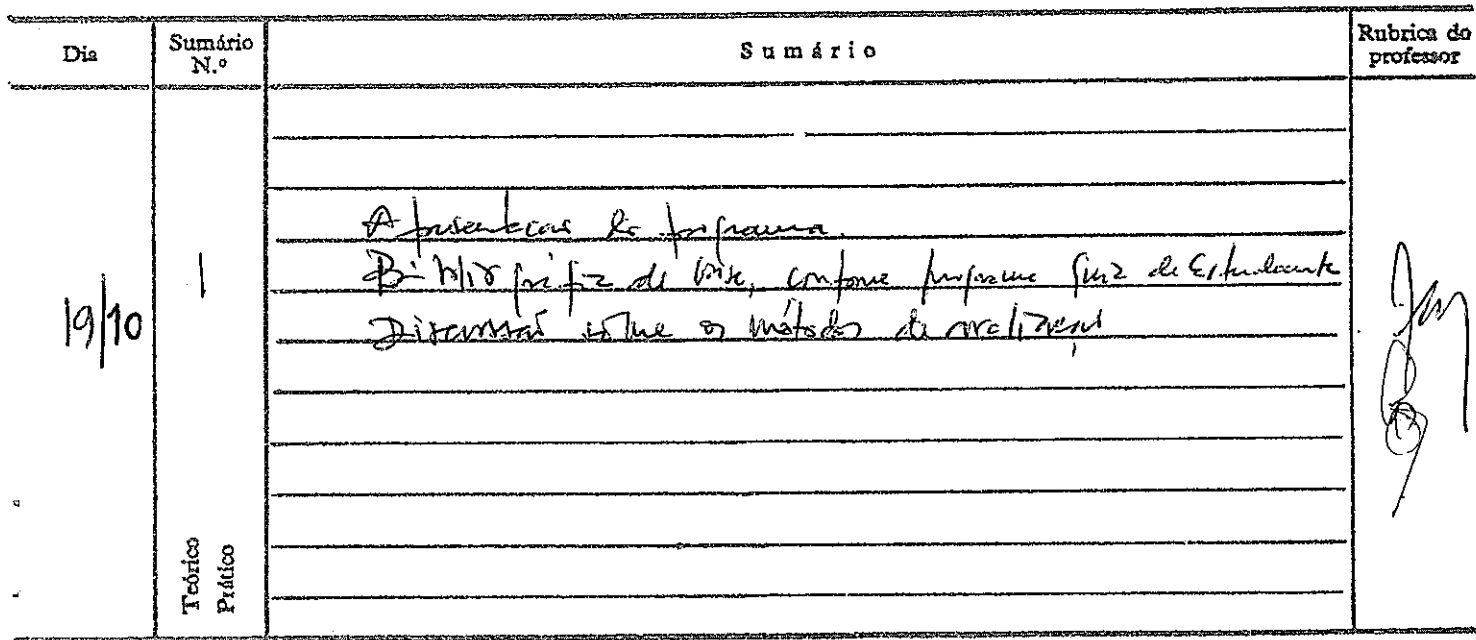 Dia
Sumário N.º
Sumário
Rubrica do professor
19/10
1
Apresentação do programa.
Bibliografia de base, conforme programa Guia de Estudante
Discussão sobre os métodos de avaliação
Teórico
Prático